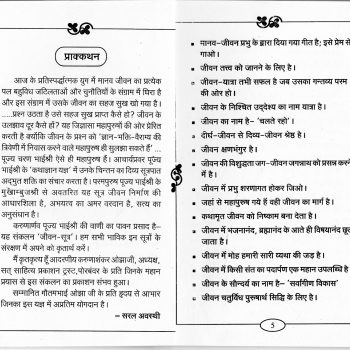 प्राक्कथन
आज के प्रतिस्पर्द्धात्मक युग में मानव जीवन का प्रत्येक
पल बहुविध जटिलताओं और चुनौतियों के संग्राम में घिरा है
और इस संग्राम में उसके जीवन का सहज सुख खो गया है।
.....प्रश्न उठता है उसे सहज सुख प्राप्त कैसे हो? जीवन के
उलझाव दूर कैसे हों? यह जिज्ञासा महापुरुषों की ओर प्रेरित
करती है क्योंकि जीवन के प्रश्न को 'ज्ञान-भक्ति-वैराग्य की
त्रिवेणी में निवास करने वाले महापुरुष ही सुलझा सकते हैं' ...
पूज्य चरण भाईश्री ऐसे ही महापुरुष हैं। आचार्यप्रवर पूज्य
भाईश्री के 'कथाज्ञान यज्ञ' में उनके चिन्तन का दिव्य सूत्रपात
अद्भुत शक्ति का संचार करता है। परमपुरुष पूज्य भाईश्री के
मुखेाम्बुजश्री से अवतरित यह सूत्र जीवन निर्माण की
आधारशिला है, अभयता का अमर वरदान है, सत्य का
अनुसंधान है।
करुणार्णव पूज्य भाईश्री की वाणी का पावन प्रसाद है-
यह संकलन 'जीवन-सूत्र'। हम सभी भाविक इन सूत्रों के
संरक्षण में अपने को कृतार्थ करें।
मैं कृतकृत्य हूँ आदरणीय करुणाशंकर ओझाजी, अध्यक्ष,
सत् साहित्य प्रकाशन ट्रस्ट, पोरबंदर के प्रति जिनके महान
प्रयास से इस संकलन का प्रकाशन संभव हुआ।
सम्मानित गौतमभाई ओझा जी के प्रति हृदय से आभार
जिनका इस यज्ञ में अप्रतिम योगदान है।
– सरल अवस्थी
मानव-जीवन प्रभु के द्वारा दिया गया गीत है; इसे प्रेम से
गाओ।
जीवन तत्त्व को जानने के लिए है।
जीवन-यात्रा तभी सफल है जब उसका गन्तव्य परम
की ओर हो।
जीवन के निश्चित उद्देश्य का नाम यात्रा है।
जीवन का नाम है- 'चलते रहो'।
दीर्घ-जीवन से दिव्य-जीवन श्रेष्ठ है।
जीवन क्षणभंगुर है।
जीवन की विशुद्धता जग-जीवन जगन्नाथ को प्रसन्न करने
में है।
जीवन में प्रभु शरणागत होकर जिओ।
जहां से महापुरुष गये हैं वही जीवन का मार्ग है।
कथामृत जीवन को निष्काम बना देता है।
जीवन में भजनानंद, ब्रह्मानंद के आते ही विषयानंद छूट
जाता है।
जीवन में मोह हमारी सारी व्यथा की जड़ है।
जीवन में किसी संत का पदार्पण एक महान उपलब्धि है।
जीवन के सौन्दर्य का नाम है- 'सर्वांगीण विकास'
जीवन चतुर्विध पुरुषार्थ सिद्धि के लिए है।
5